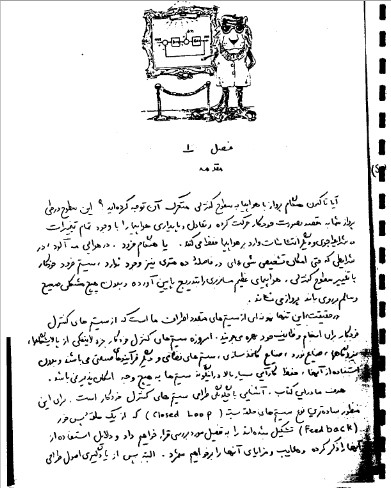 فصل ۱
مقدمه
آیا تاکنون هنگام پرواز با هواپیما به سطوح کنترلی متحرک آن توجه کرده‌اید؟ این سطوح در طی
پرواز شما به مقصد بصورت خودکار حرکت کرده و تعادل و پایداری هواپیما را با وجود تمام تغییرات
شرایط جوی و دیگر اغتشاشات وارد بر هواپیما حفظ می‌کند. یا هنگام فرود، در هوای مه آلود، در
شرایطی که حتی امکان تشخیص شیء‌ای در فاصلهٔ ده متری نیز وجود ندارد، سیستم فرود خودکار
با تغییر سطوح کنترلی، هواپیمای عظیم مسافربری را بتدریج پایین آورده و بدون هیچ مشکلی صحیح
و سالم روی باند پروازی نشاند.
در حقیقت این تنها نمونه‌ای از سیستم‌های متعدد اطراف ما است که از سیستم‌های کنترل
خودکار برای انجام وظایف خود بهره می‌جویند. امروزه سیستم‌های کنترل خودکار جزء لاینفکی از پالایشگاهها،
نیروگاهها، صنایع فولاد، صنایع کاغذسازی، سیستم‌های نظامی و دیگر فرآیندهای صنعتی می‌باشند و بدون
استفاده از آنها، حفظ کارآیی بسیار بالا در اینگونه سیستم‌ها به هیچ وجه امکان پذیر نمی‌باشد.
هدف ما در این کتاب، آشنایی با چگونگی طراحی سیستم‌های کنترل خودکار است. برای این
منظور ساده‌ترین نوع سیستم‌های حلقه بسته (Closed Loop) که از یک حلقه پس خور
(Feedback) تشکیل شده‌اند را به تفصیل مورد بررسی قرار خواهیم داد و دلایل استفاده از
آنها را ذکر کرده و معایب و مزایای آنها را برخواهیم شمرد. البته پس از یادگیری اصول طراحی